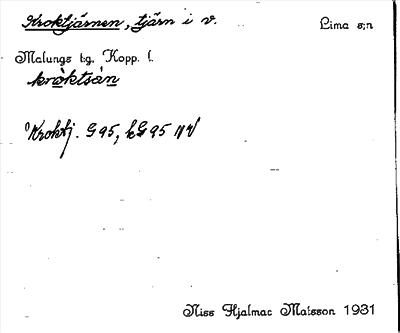 Kroktjärnen, tjärn i v. Lima s:n
Malungs tg. Kopp. l.
kròktsàn
Kroktj. G95, kG95 NV
Niss Hjalmar Matsson 1931